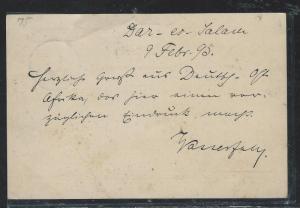 Dar-es-Salam
9 Febr. 95.
Herzliche Grüße aus Deutsch. Ost
Afrika, das hier einen vor-
züglichen Eindruck macht.